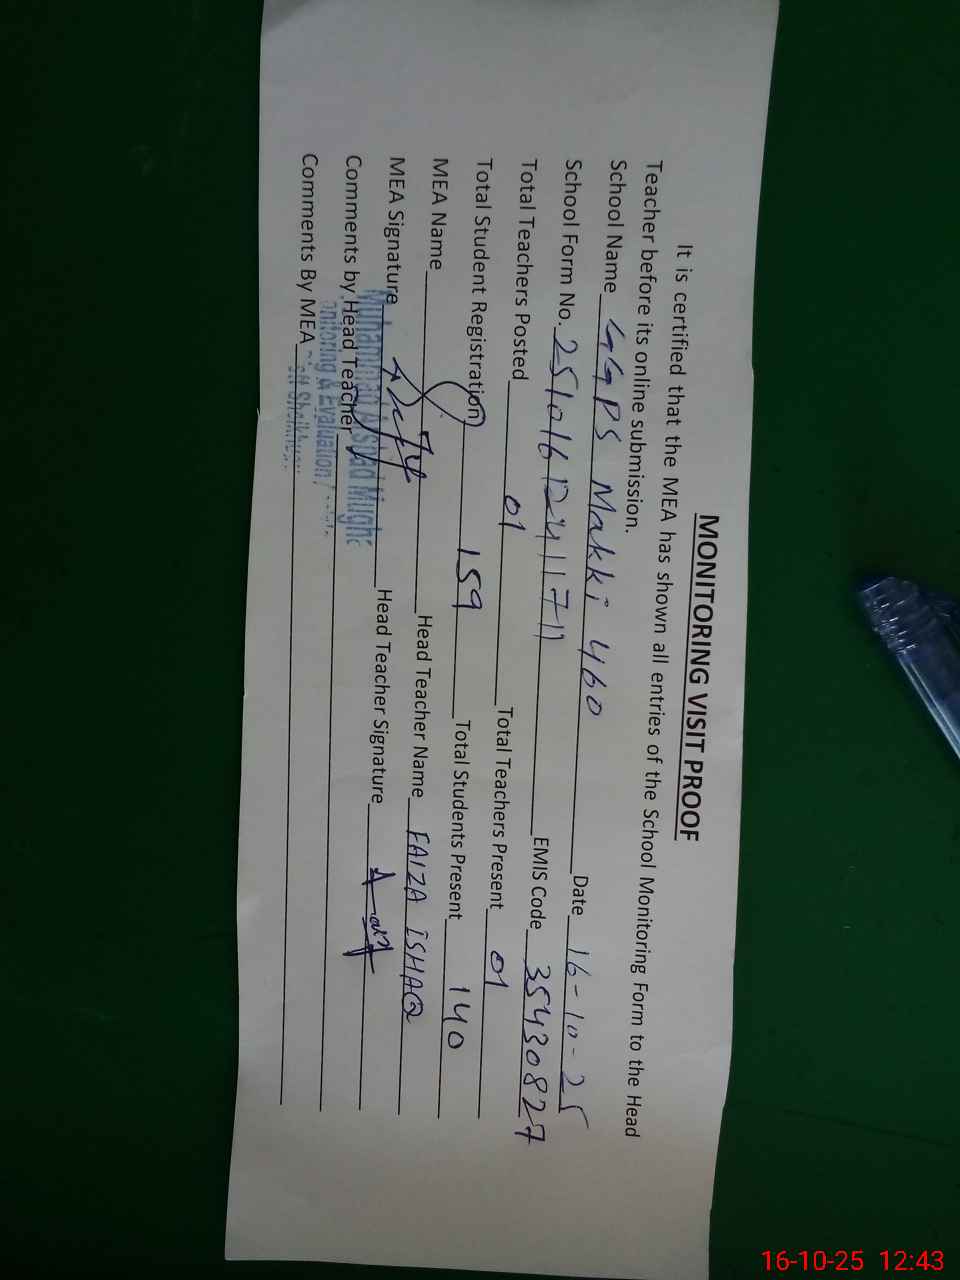 MONITORING VISIT PROOF
It is certified that the MEA has shown all entries of the School Monitoring Form to the Head
Teacher before its online submission.
School Name GGPS Makki 460 Date 16-10-25
School Form No. 2510161241171 EMIS Code 35430827
Total Teachers Posted 01 Total Teachers Present 01
Total Student Registration 159 Total Students Present 140
MEA Name Head Teacher Name FAIZA ISHAQ
MEA Signature Head Teacher Signature
Muhammad
Comments by Head Teacher
Monitoring & Evaluation
Comments By MEA
16-10-25 12:43